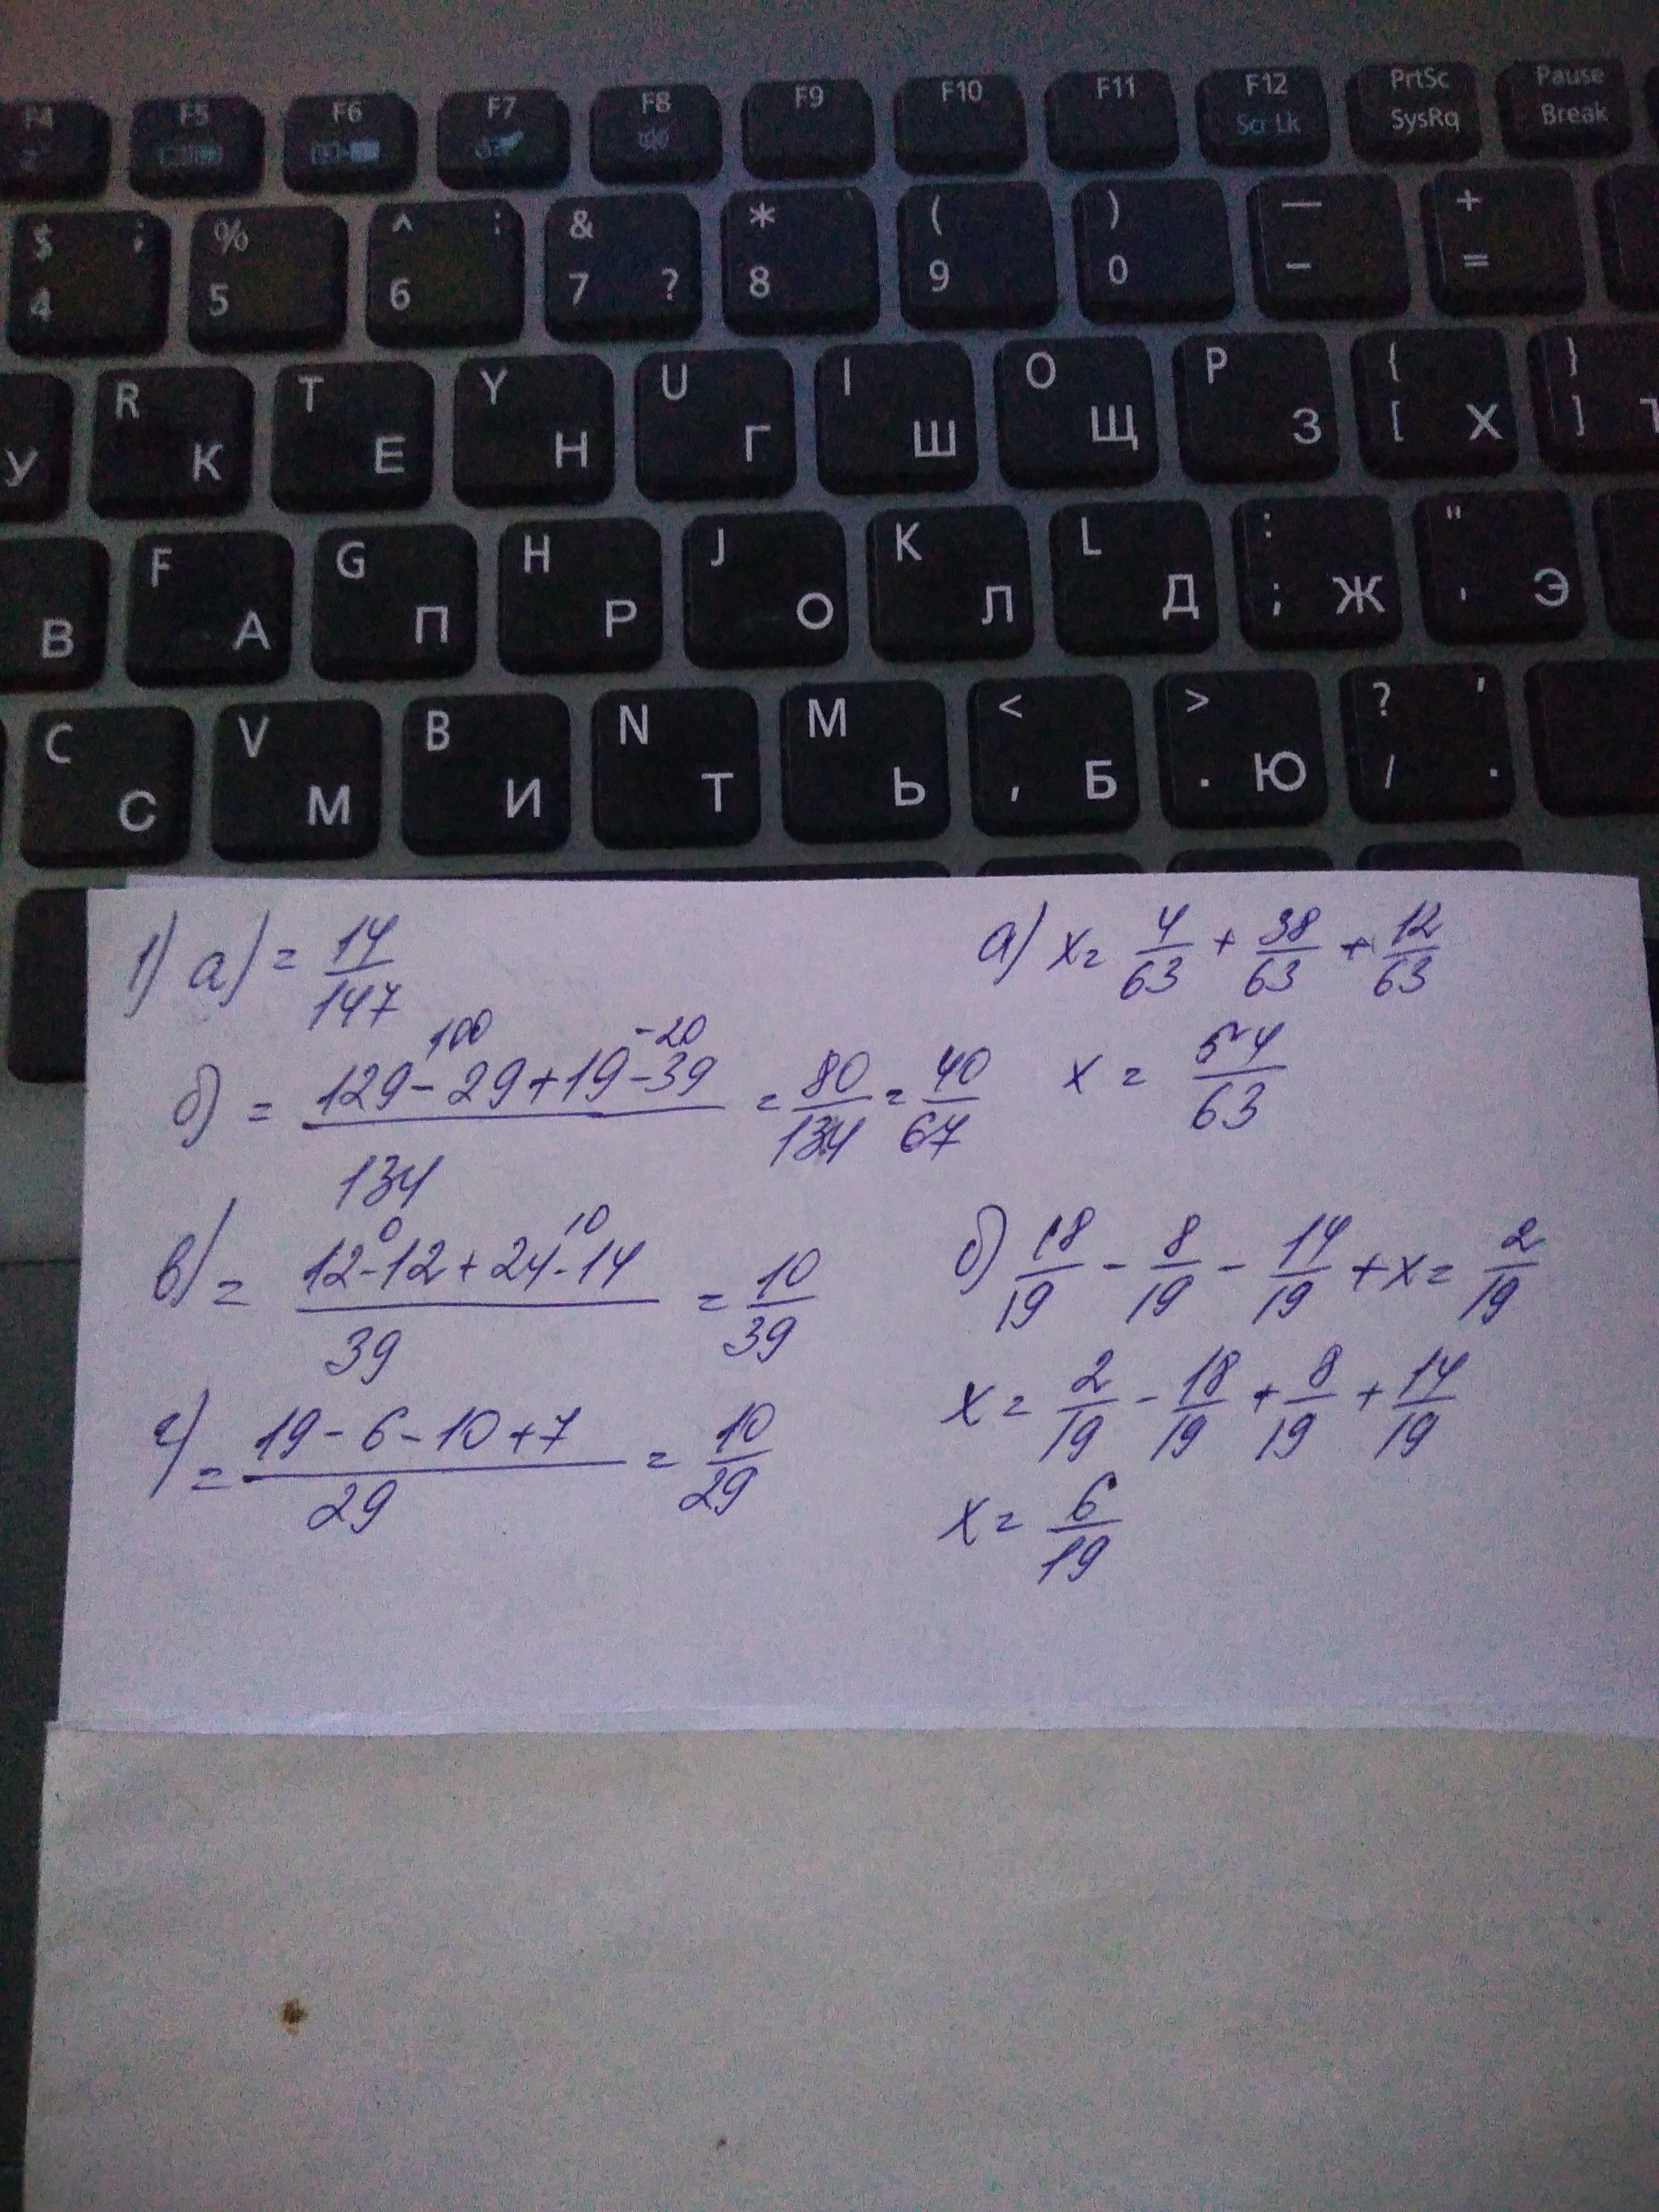 F4 F5 F6 F7 F8 F9 F10 F11 F12 Scr Lk PrtSc SysRq Pause Break
$ ; 4 % 5 ^ : 6 & 7 ? * 8 ( 9 ) 0 — - + =
У R К T Е Y Н U Г I Ш O Щ P З { [ Х } ]
В F А G П H Р J О K Л L Д : ; Ж " ' Э
C С V М B И N Т M Ь < , Б > . Ю ? / ' .
1) а) = 14/147
б) = (129 - 29 + 19 - 39)/134 = 80/134 = 40/67
100 -20
в) = (12 - 12 + 24 - 14)/39 = 10/39
0 10
г) = (19 - 6 - 10 + 7)/29 = 10/29
а) x = 4/63 + 38/63 + 12/63
x = 54/63
б) 18/19 - 8/19 - 14/19 + x = 2/19
x = 2/19 - 18/19 + 8/19 + 14/19
x = 6/19